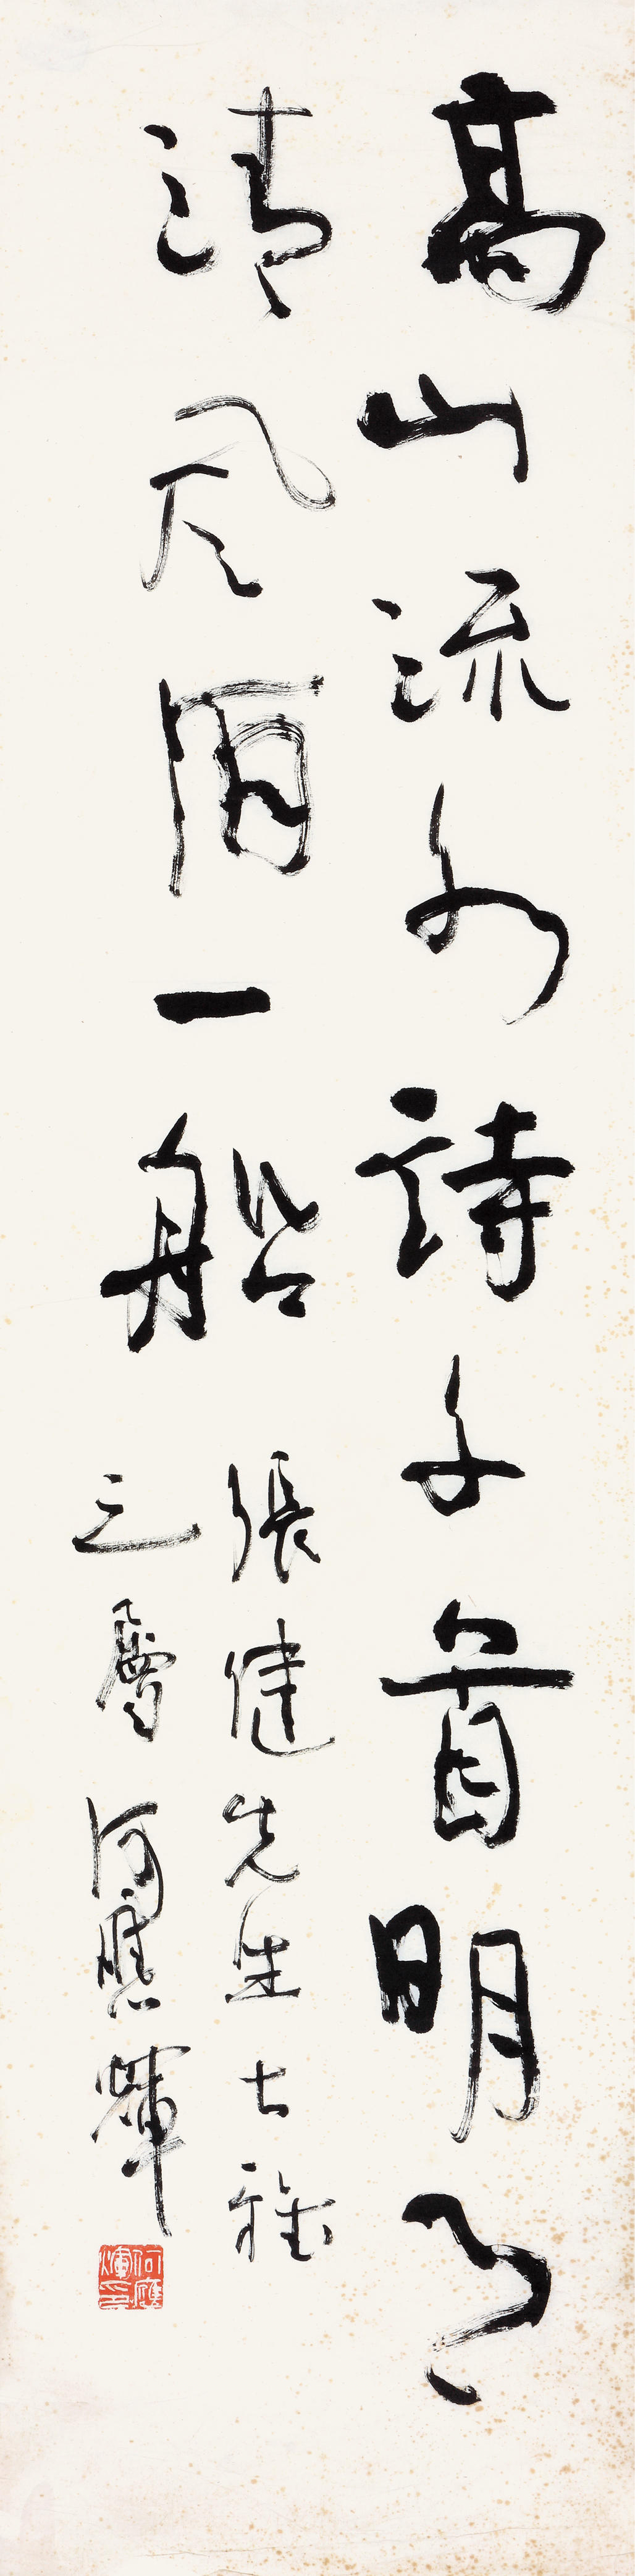 高山流水詩千首明月
清風酒一船
張健先生大雅
之屬 何應輝
何應輝印